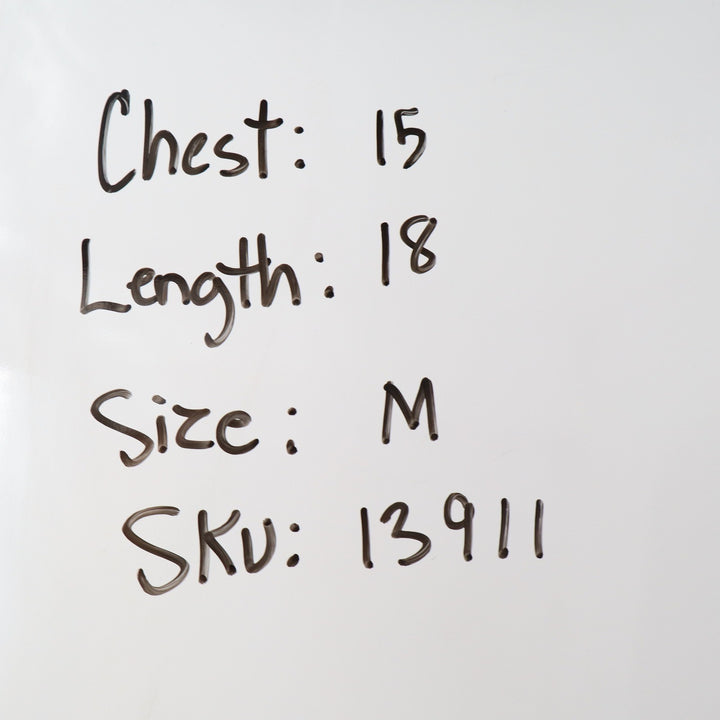 Chest: 15
Length: 18
Size: M
SKU: 13911